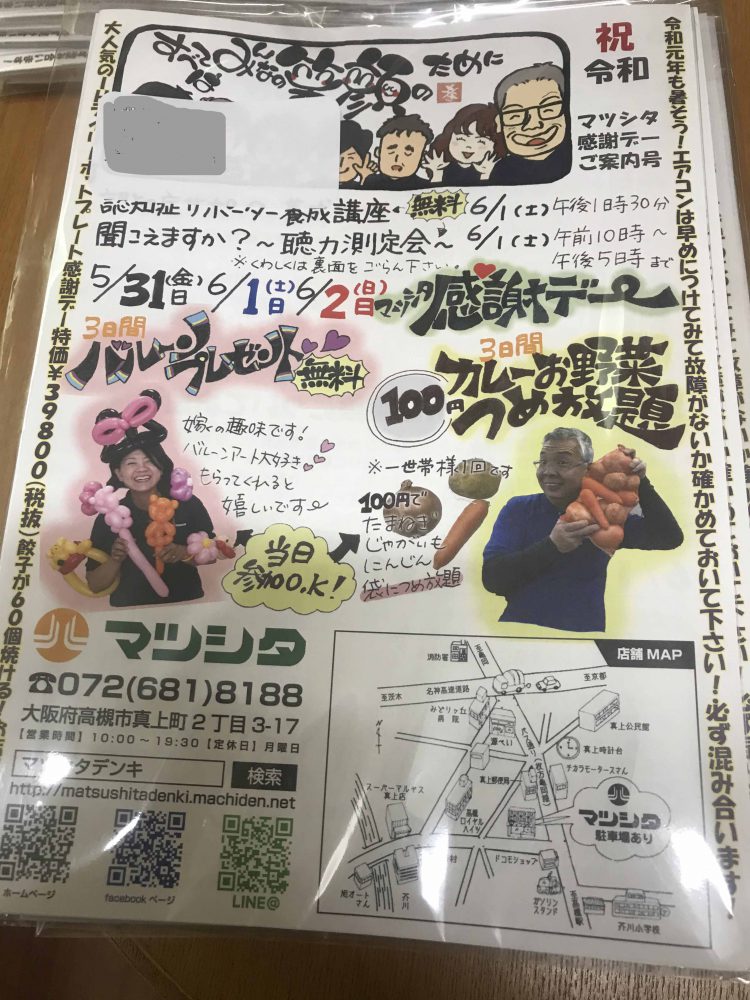 すべてはみんなの笑顔のために
祝
令和
マツシタ
感謝デー
ご案内号
認知症サポーター養成講座 無料 6/1(土)午後1時30分
聞こえますか?~聴力測定会~ 6/1(土)午前10時~
午後5時まで
※くわしくは裏面をごらん下さい。
5/31(金)6/1(土)6/2(日)マツシタ感謝デー
3日間
バルーンプレゼント
無料
嫁の趣味です!
バルーンアート大好き
もらってくれると
嬉しいです
3日間
100円
カレーお野菜
つめ放題
※一世帯様1回です
100円で
たまねぎ
じゃがいも
にんじん
袋につめ放題
当日
参加O.K!
令和元年も暑そう!エアコンは早めにつけてみて故障がないか確かめておいて下さい!必ず混み合います!
特価¥39800(税抜)餃子が60個焼ける!
マツシタ
☎072(681)8188
大阪府高槻市真上町2丁目3-17
【営業時間】10:00~19:30【定休日】月曜日
マツシタデンキ 検索
http://matsushitadenki.machiden.net
ホームページ
facebookページ
LINE@
店舗MAP
消防署
至亀岡
至茨木
名神高速道路
至京都
みどりヶ丘
病院
源ぺい
真上公民館
真上時計台
チカラモータースさん
真上郵便局
スーパーマルヤス
真上店
高槻
ロイヤル
ハイツ
マツシタ
駐車場あり
ドコモショップ
旭オート
さん
芥川
ガソリン
スタンド
至高槻駅
芥川小学校